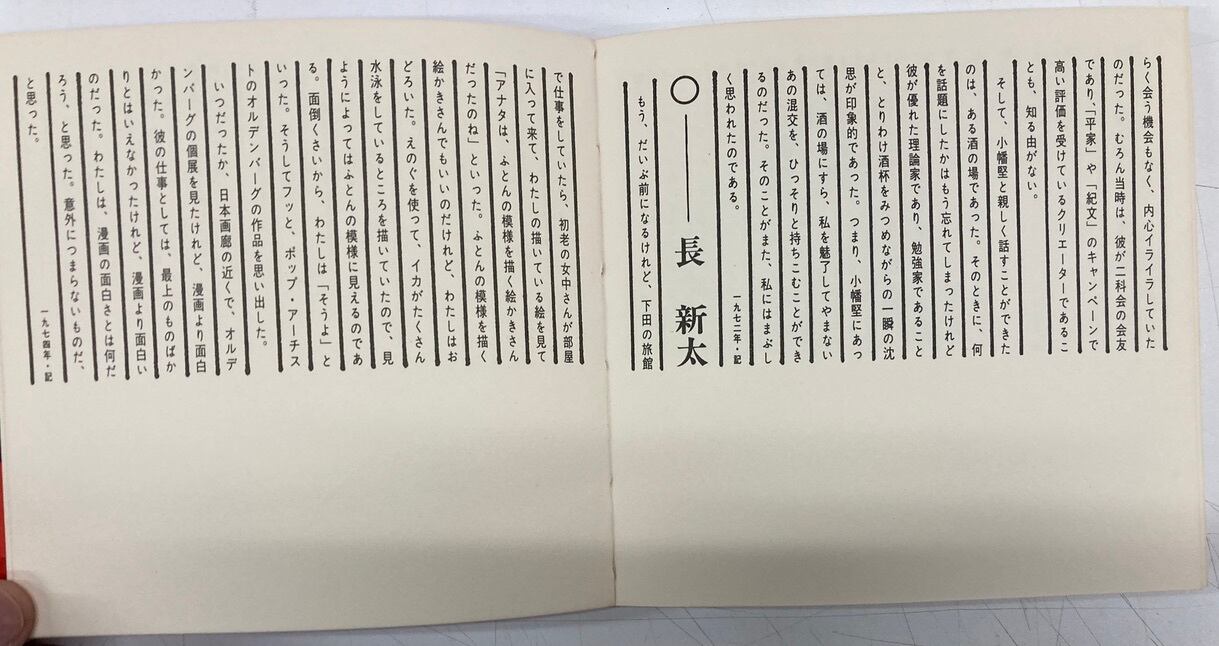 らく会う機会もなく、内心イライラしていた
のだった。むろん当時は、彼が二科会の会友
であり、「平家」や「紀文」のキャンペーンで
高い評価を受けているクリエーターであるこ
とも、知る由がない。
そして、小幡堅と親しく話すことができた
のは、ある酒の場であった。そのときに、何
を話題にしたかはもう忘れてしまったけれど
彼が優れた理論家であり、勉強家であること
と、とりわけ酒杯をみつめながらの一瞬の沈
思が印象的であった。つまり、小幡堅にあっ
ては、酒の場にすら、私を魅了してやまない
あの混交を、ひっそりと持ちこむことができ
るのだった。そのことがまた、私にはまぶし
く思われたのである。
一九七二年・記
○———長 新太
もう、だいぶ前になるけれど、下田の旅館
で仕事をしていたら、初老の女中さんが部屋
に入って来て、わたしの描いている絵を見て
「アナタは、ふとんの模様を描く絵かきさん
だったのね」といった。ふとんの模様を描く
絵かきさんでもいいのだけれど、わたしはお
どろいた。えのぐを使って、イカがたくさん
水泳をしているところを描いていたので、見
ようによってはふとんの模様に見えるのであ
る。面倒くさいから、わたしは「そうよ」と
いった。そうしてフッと、ポップ・アーチス
トのオルデンバーグの作品を思い出した。
いつだったか、日本画廊の近くで、オルデ
ンバーグの個展を見たけれど、漫画より面白
かった。彼の仕事としては、最上のものばか
りとはいえなかったけれど、漫画より面白い
のだった。わたしは、漫画の面白さとは何だ
ろう、と思った。意外につまらないものだ、
と思った。
一九七四年・記